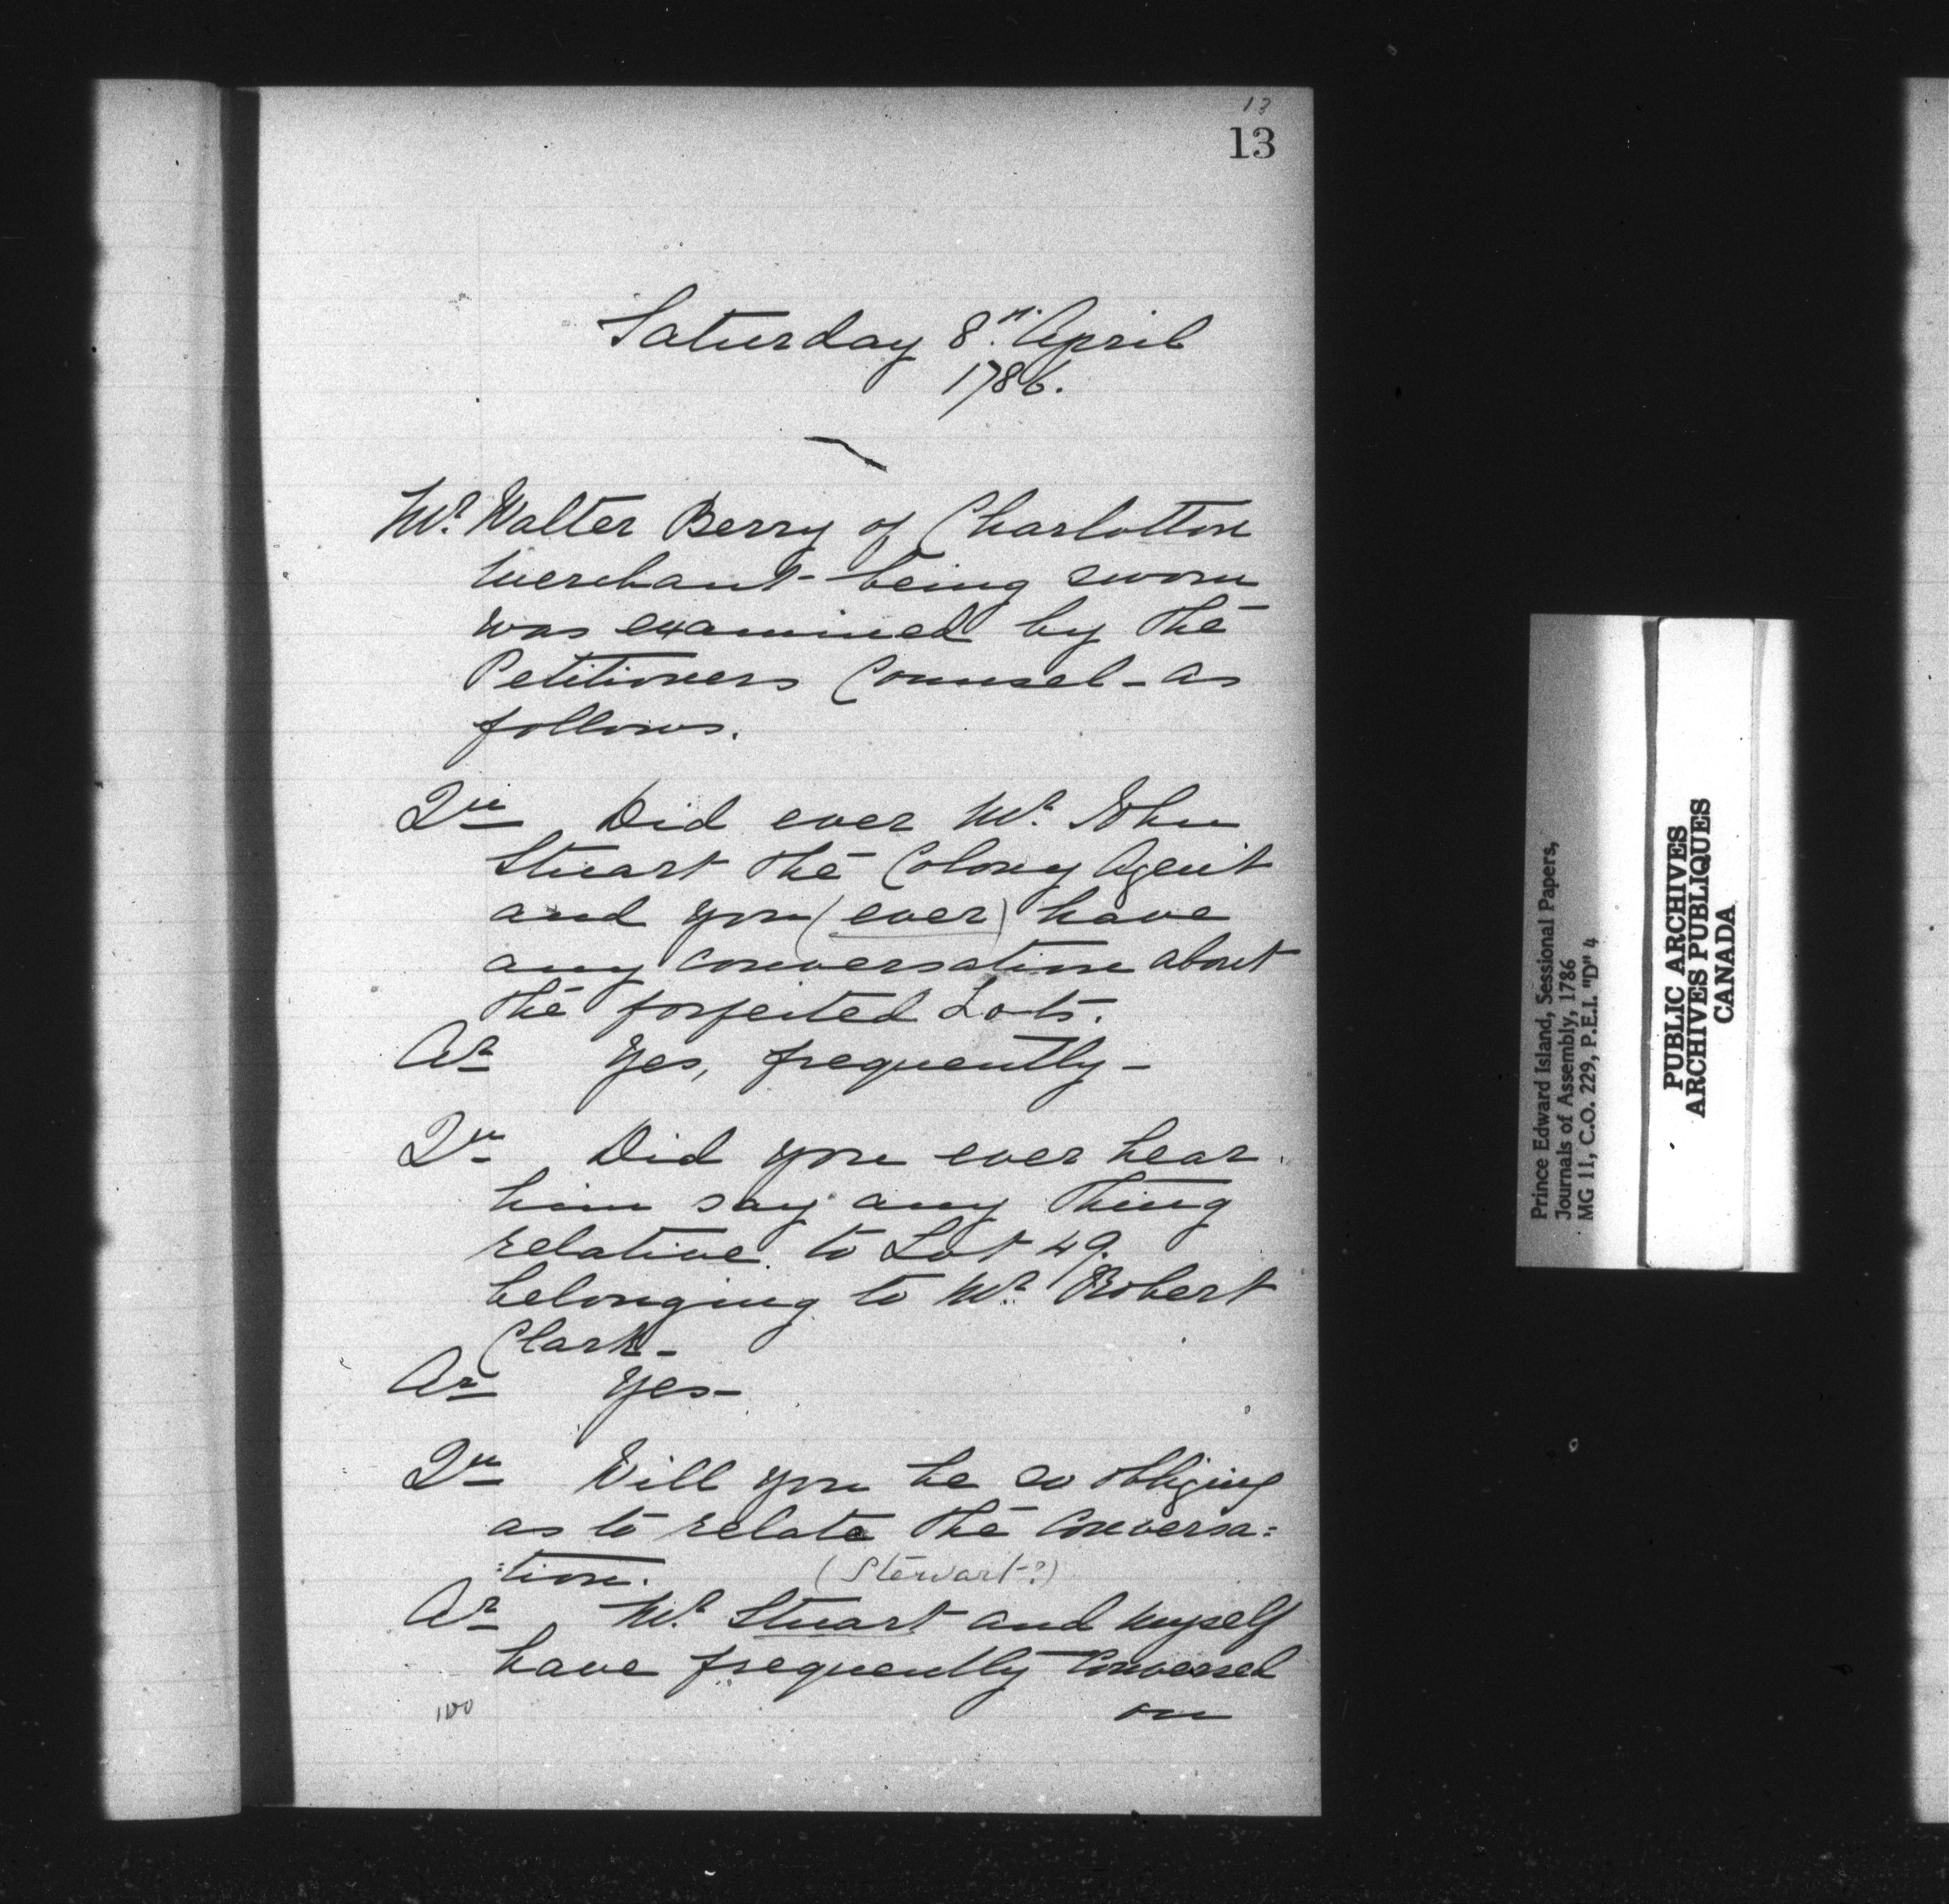 13
13
Saturday 8th. April
1786.
Mr. Walter Berry of Charlotton
Merchant - being sworn
was examined by the
Petitioners Counsel - as
follows.
Qu Did ever Mr. John
Stuart the Colony Agent
and you (ever) have
any conversation about
the forfeited Lots.
Ar Yes, frequently -
Qu Did you ever hear
him say any thing
relative to Lot 49.
belonging to Mr. Robert
Clark -
Ar Yes -
Qu Will you be so obliging
as to relate the Conversa=
=tion.
(Stewart?)
Ar Mr. Stuart and myself
have frequently Conversed
on
100
Prince Edward Island, Sessional Papers,
Journals of Assembly, 1786
MG 11, C.O. 229, P.E.I. "D" 4
PUBLIC ARCHIVES
ARCHIVES PUBLIQUES
CANADA